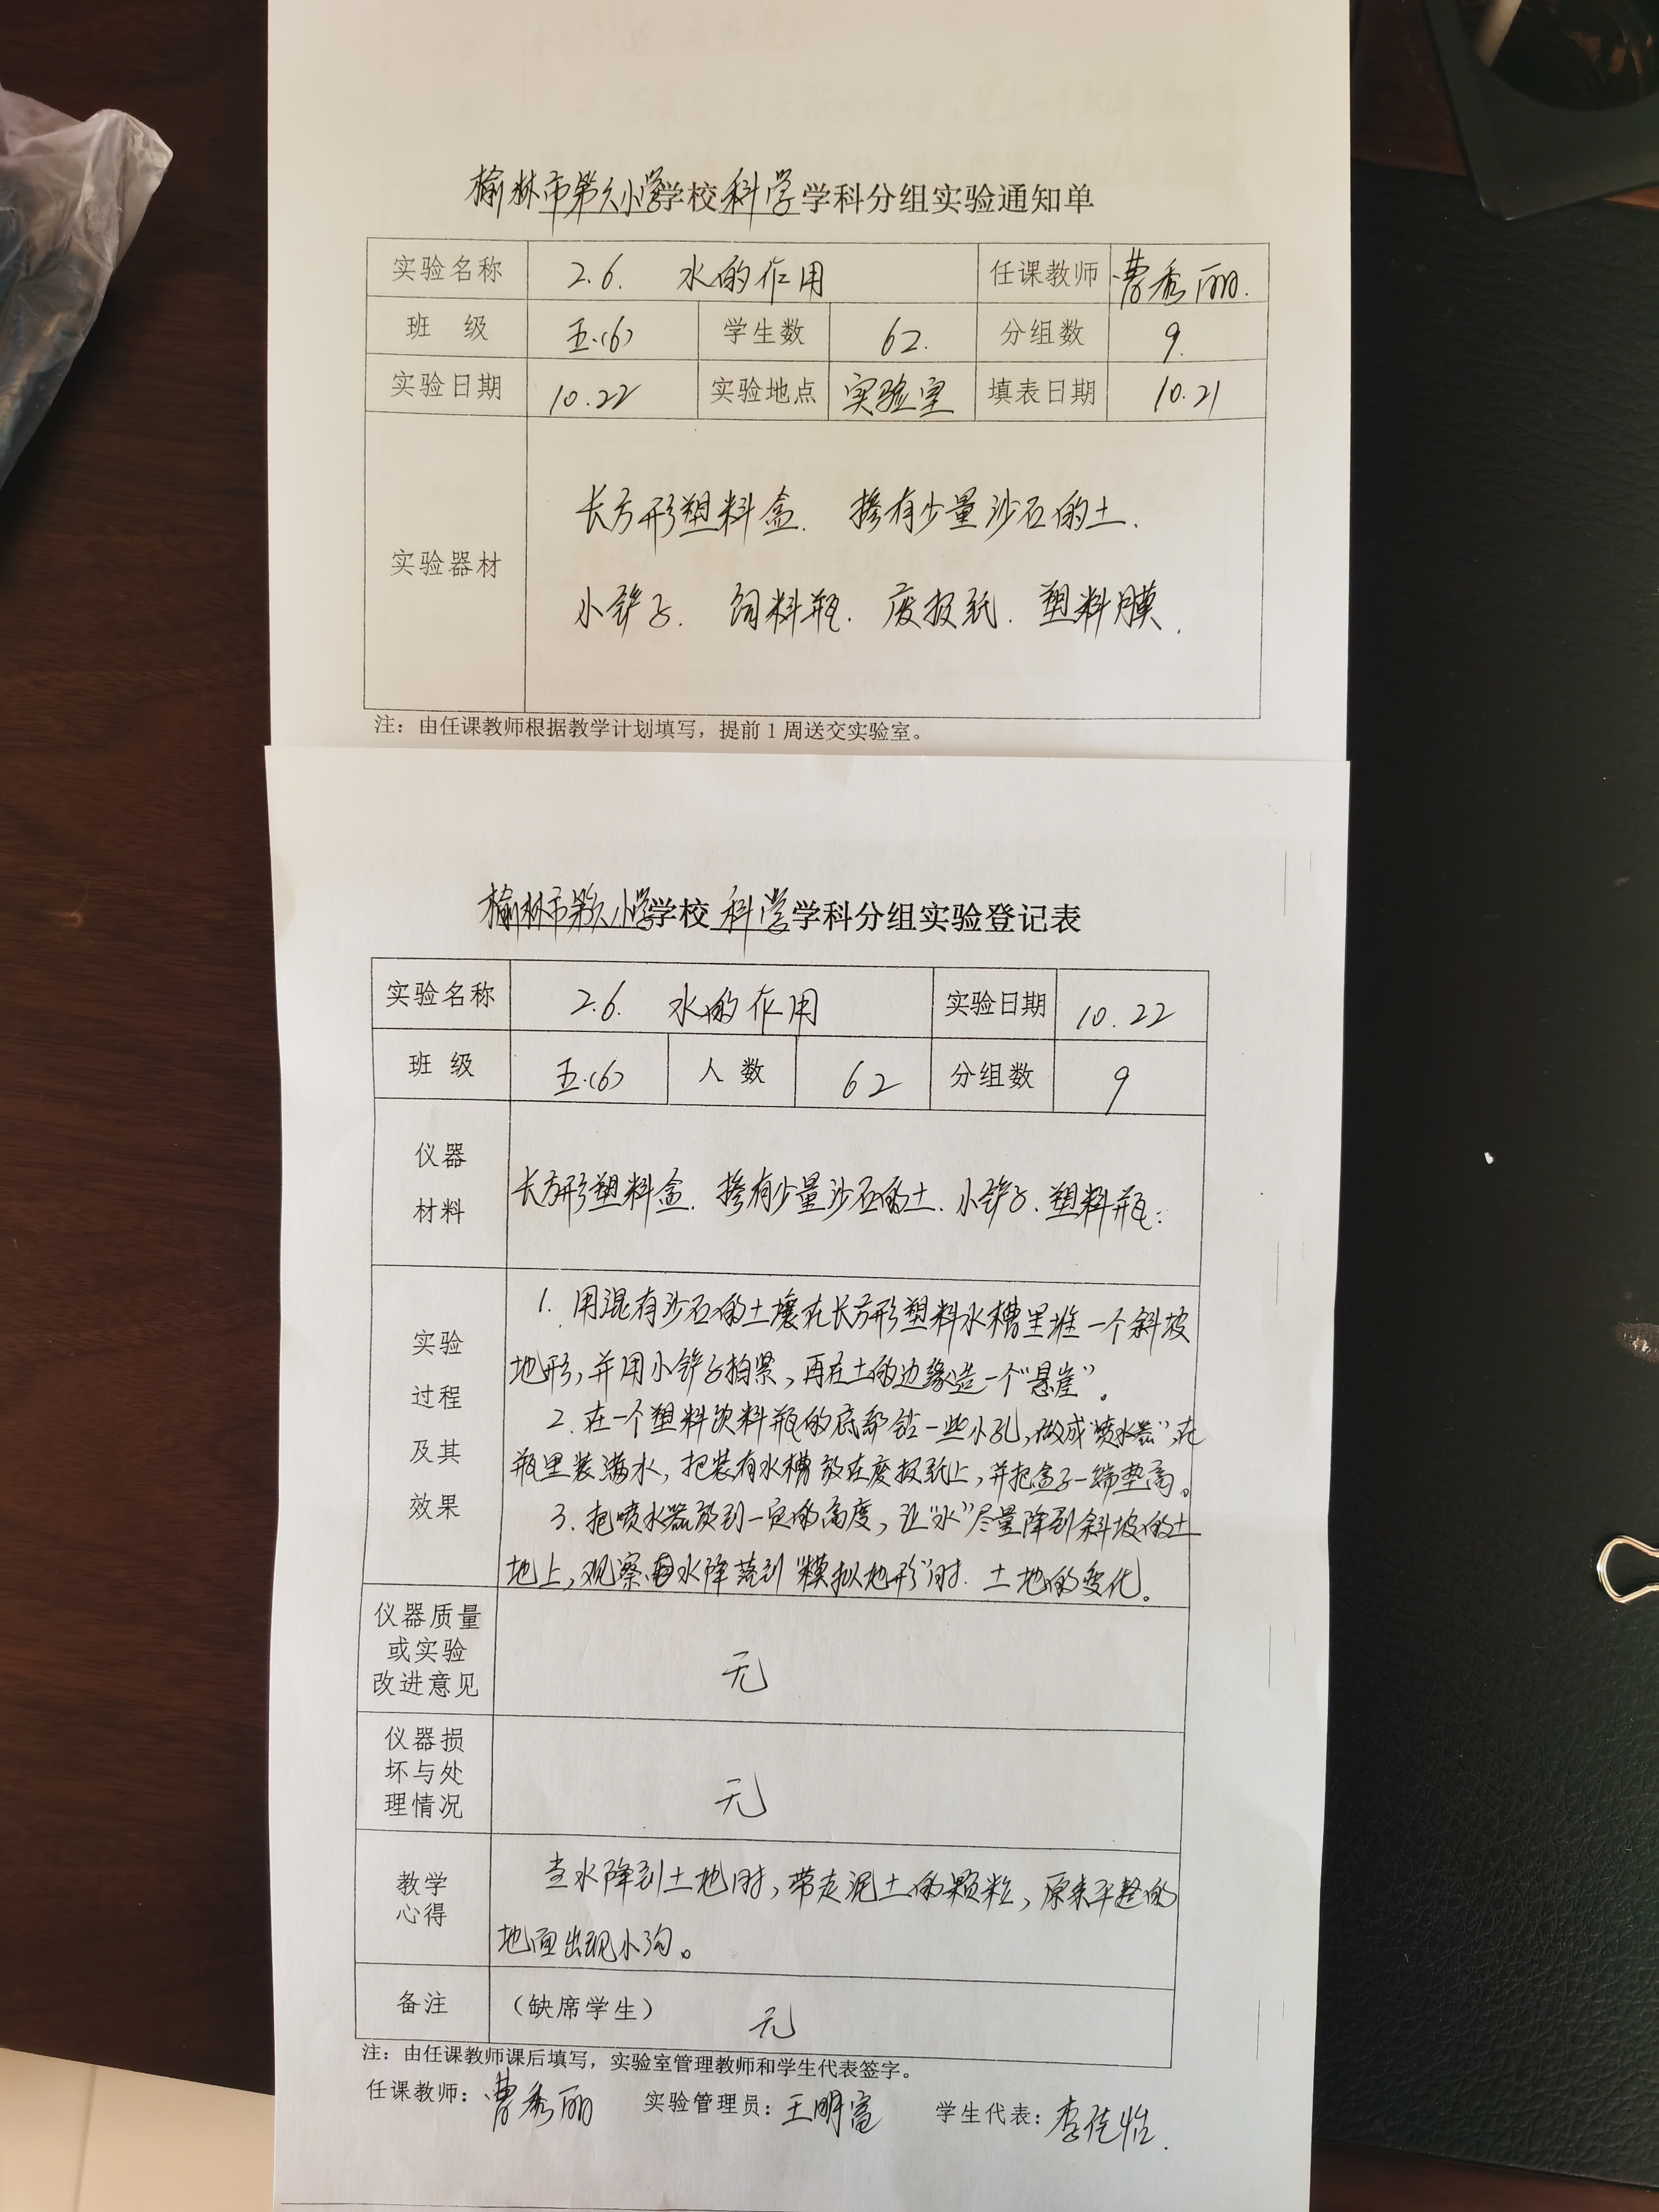 榆林市第六小学学校科学学科分组实验通知单
实验名称 2.6. 水的作用 任课教师 曹秀丽.
班 级 五.(6) 学生数 62. 分组数 9.
实验日期 10.22 实验地点 实验室 填表日期 10.21
长方形塑料盒. 掺有少量沙石的土.
实验器材
小铲子. 饲料瓶. 废报纸. 塑料膜.
注：由任课教师根据教学计划填写，提前1周送交实验室。
榆林市第六小学学校科学学科分组实验登记表
实验名称 2.6. 水的作用 实验日期 10.22
班 级 五.(6) 人 数 62 分组数 9
仪器
材料
长方形塑料盒. 掺有少量沙石的土. 小铲子. 塑料瓶:
实验
过程
及其
效果
1. 用混有沙石的土壤在长方形塑料水槽里堆一个斜坡
地形，并用小铲子拍紧，再在土的边缘造一个“悬崖”。
2. 在一个塑料饮料瓶的底部钻一些小孔，做成“喷水器”，在
瓶里装满水，把装有水槽放在废报纸上，并把盒子一端垫高。
3. 把喷水器放到一定的高度，让“水”尽量降到斜坡的土
地上，观察雨水降落到“模拟地形”时. 土地的变化。
仪器质量
或实验
改进意见
无
仪器损
坏与处
理情况
无
教学
心得
当水降到土地时，带走泥土的颗粒，原来平整的
地面出现小沟。
备注 （缺席学生） 无
注：由任课教师课后填写，实验室管理教师和学生代表签字。
任课教师：曹秀丽 实验管理员：王明富 学生代表：李佳怡.